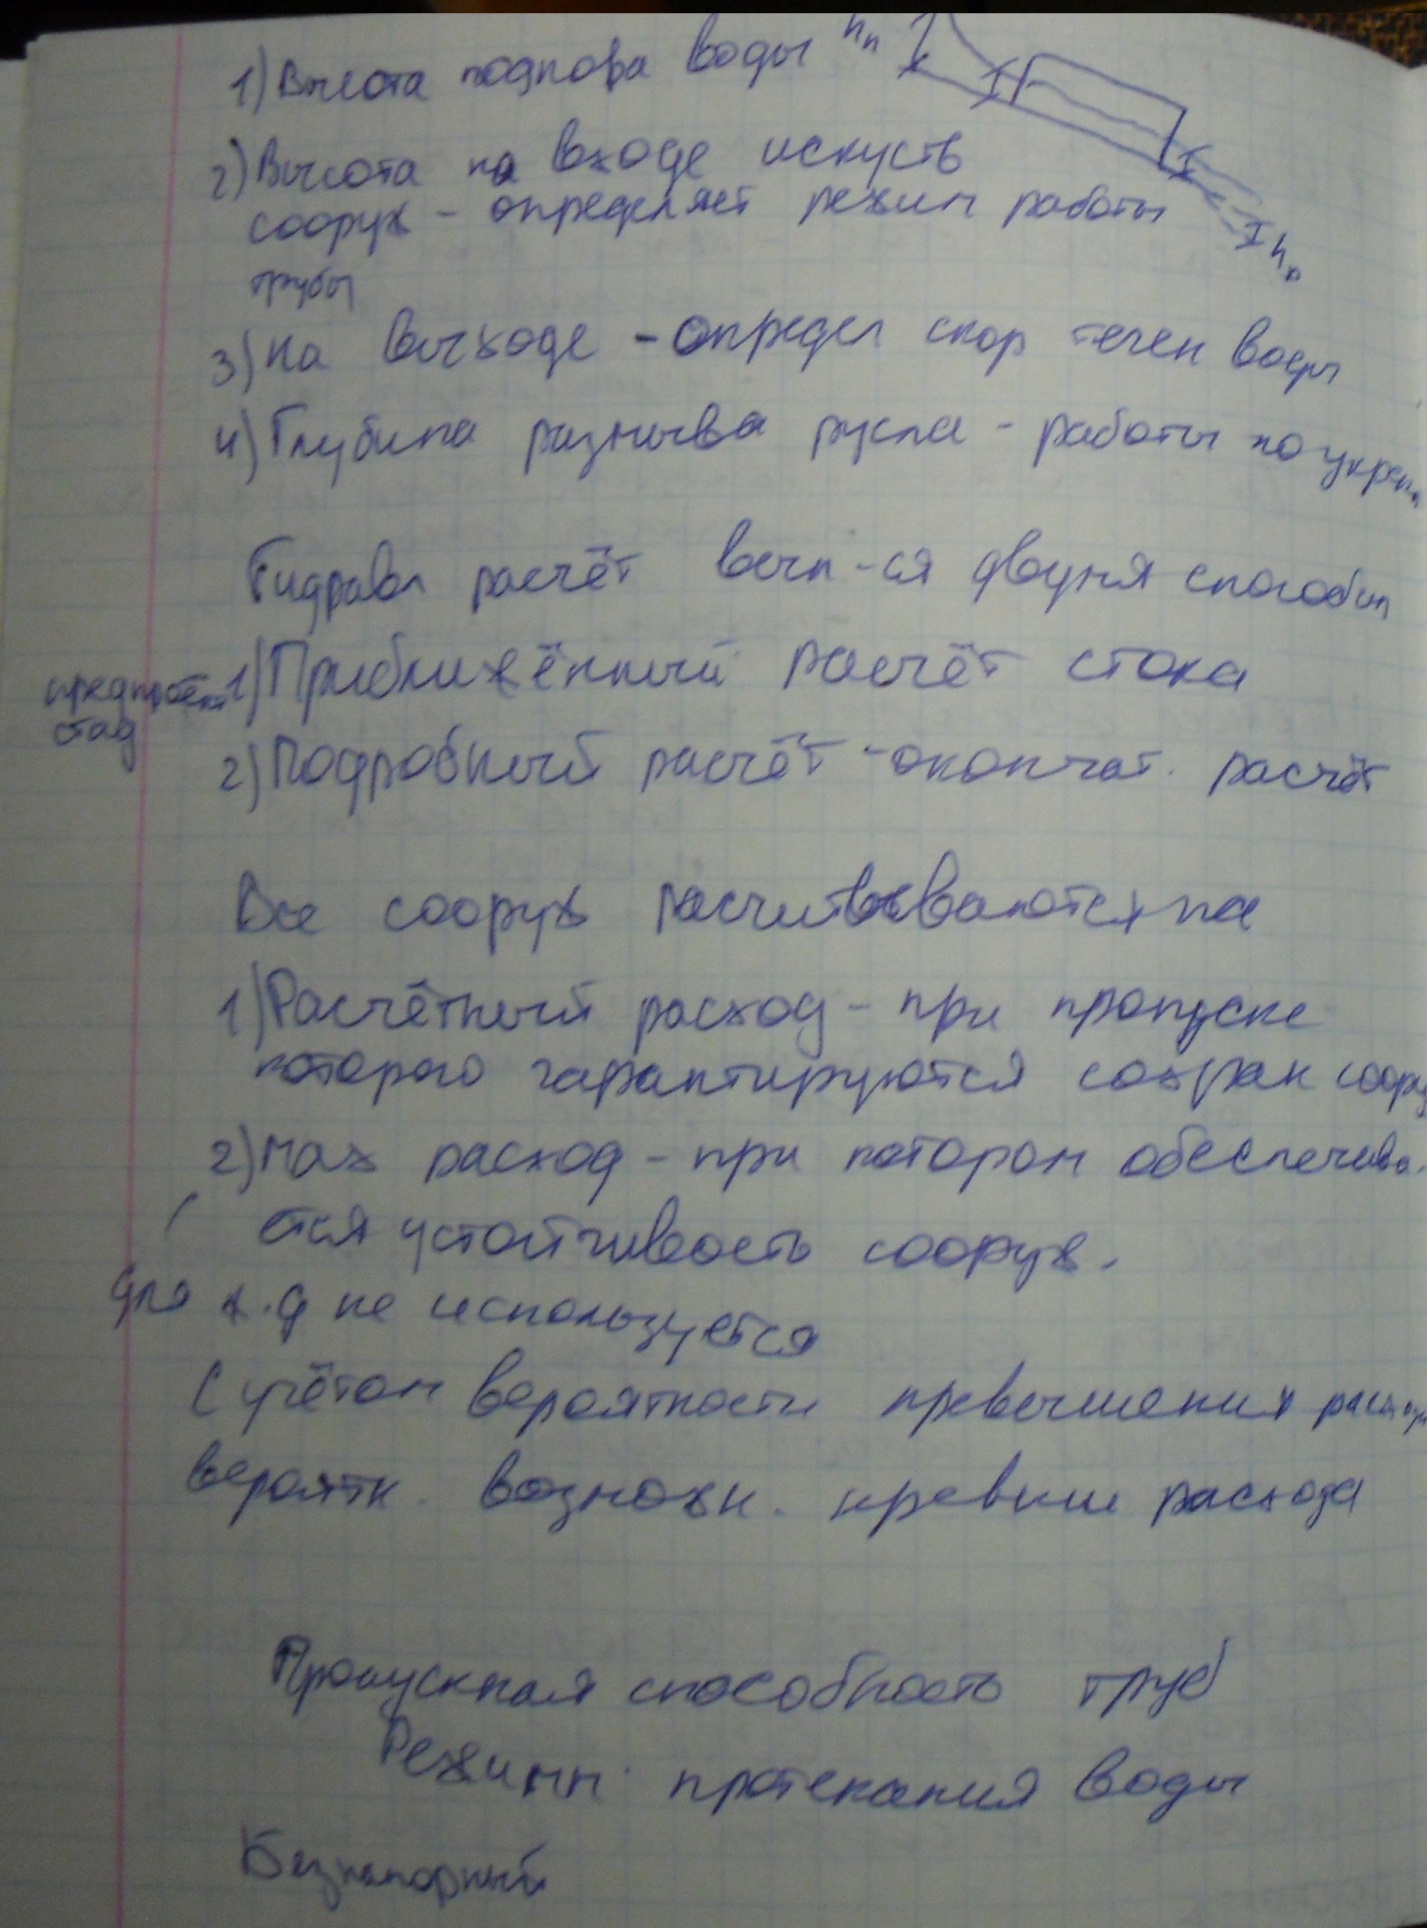 1) Высота подпора воды hп
2) Высота на входе искуств
сооруж - определяет режим работы
трубы
h₀
3) На выходе - определ скор течен воды
4) Глубина размыва русла - работы по укреп.
Гидравл расчёт вып-ся двумя способам
1) Приближённый расчёт стока
стад
2) Подробный расчёт - окончат. расчёт
Все сооруж расчитываются на
1) Расчётный расход - при пропуске
которого гарантируются сохран сооруж
2) max расход - при котором обеспечива-
ется устойчивость сооруж.
для ж.д не используется
С учётом вероятности превышения расхода
вероятн. возможн. превыш расхода
Пропускная способность труб
Режимы протекания воды
Безнапорный